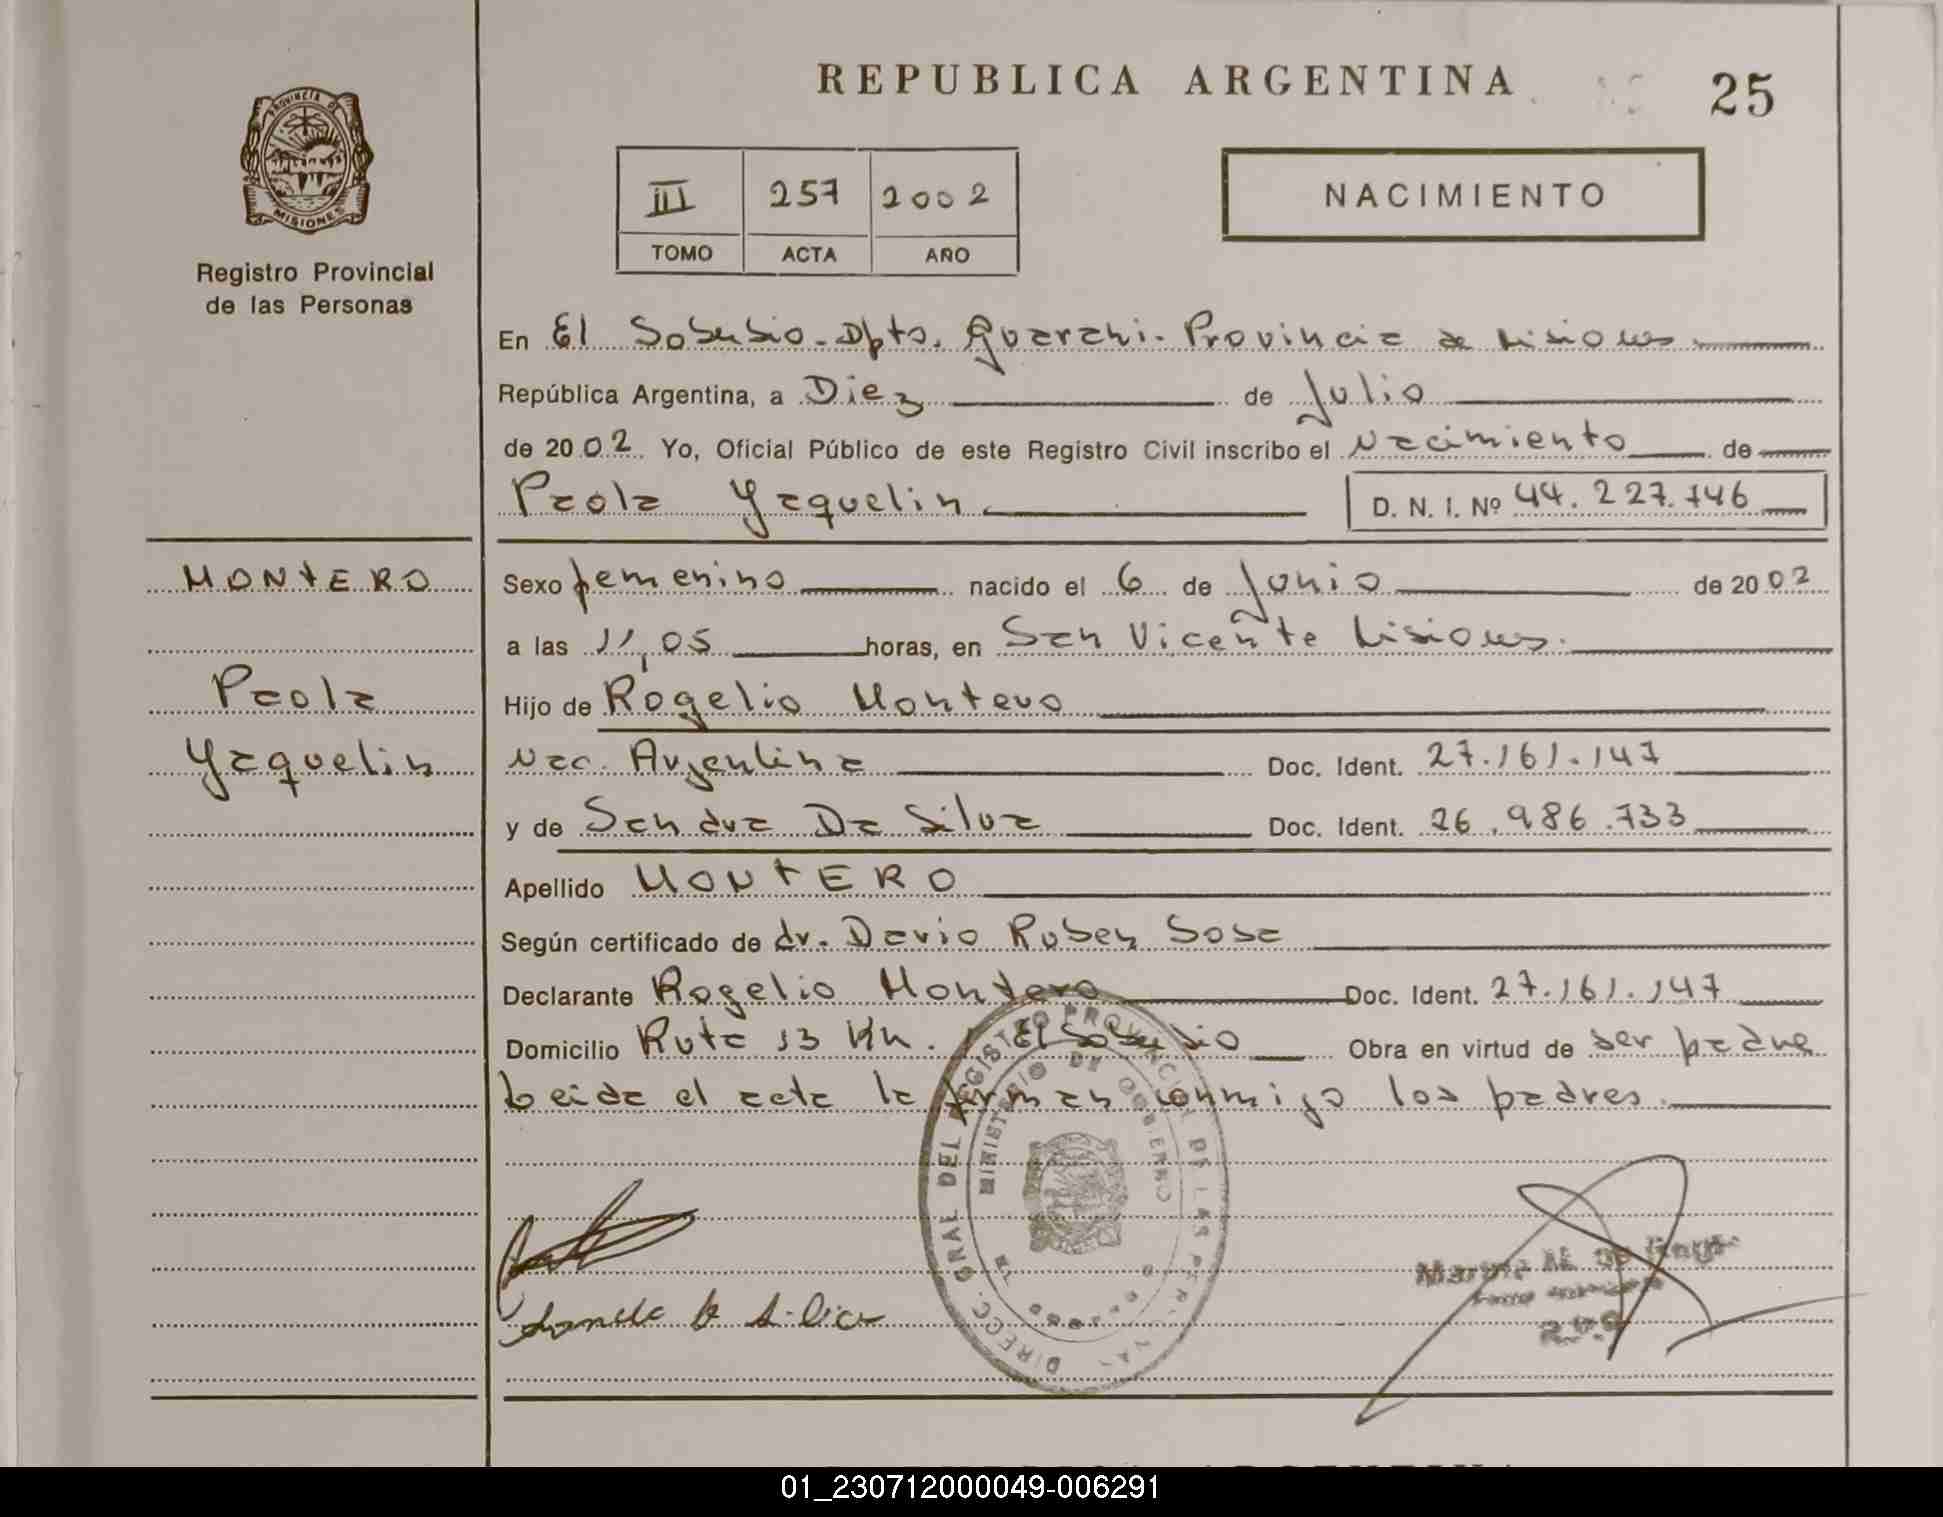 REPUBLICA ARGENTINA
25
PROVINCIA DE MISIONES
Registro Provincial
de las Personas
III 257 2002
TOMO ACTA AÑO
NACIMIENTO
En El Soberbio - Dpto. Guarani - Provincia de Misiones
República Argentina, a Diez de Julio
de 2002 Yo, Oficial Público de este Registro Civil inscribo el Nacimiento de
Paola Yaquelin D. N. I. Nº 44.227.746
MONTERO
Paola
Yaquelin
Sexo femenino nacido el 6 de Junio de 2002
a las 11,05 horas, en San Vicente Misiones.
Hijo de Rogelio Montero
Nac. Argentina Doc. Ident. 27.161.147
y de Sandra Da Silva Doc. Ident. 26.986.733
Apellido MONTERO
Según certificado de dr. Dario Ruben Sosa
Declarante Rogelio Montero Doc. Ident. 27.161.147
Domicilio Ruta 13 Km. El Soberbio Obra en virtud de ser padre
Leida el acta la firman conmigo los padres.
DIRECC. GRAL DEL REGISTRO PROVINCIAL DE LAS PERSONAS
MINISTERIO DE GOBIERNO
01_230712000049-006291